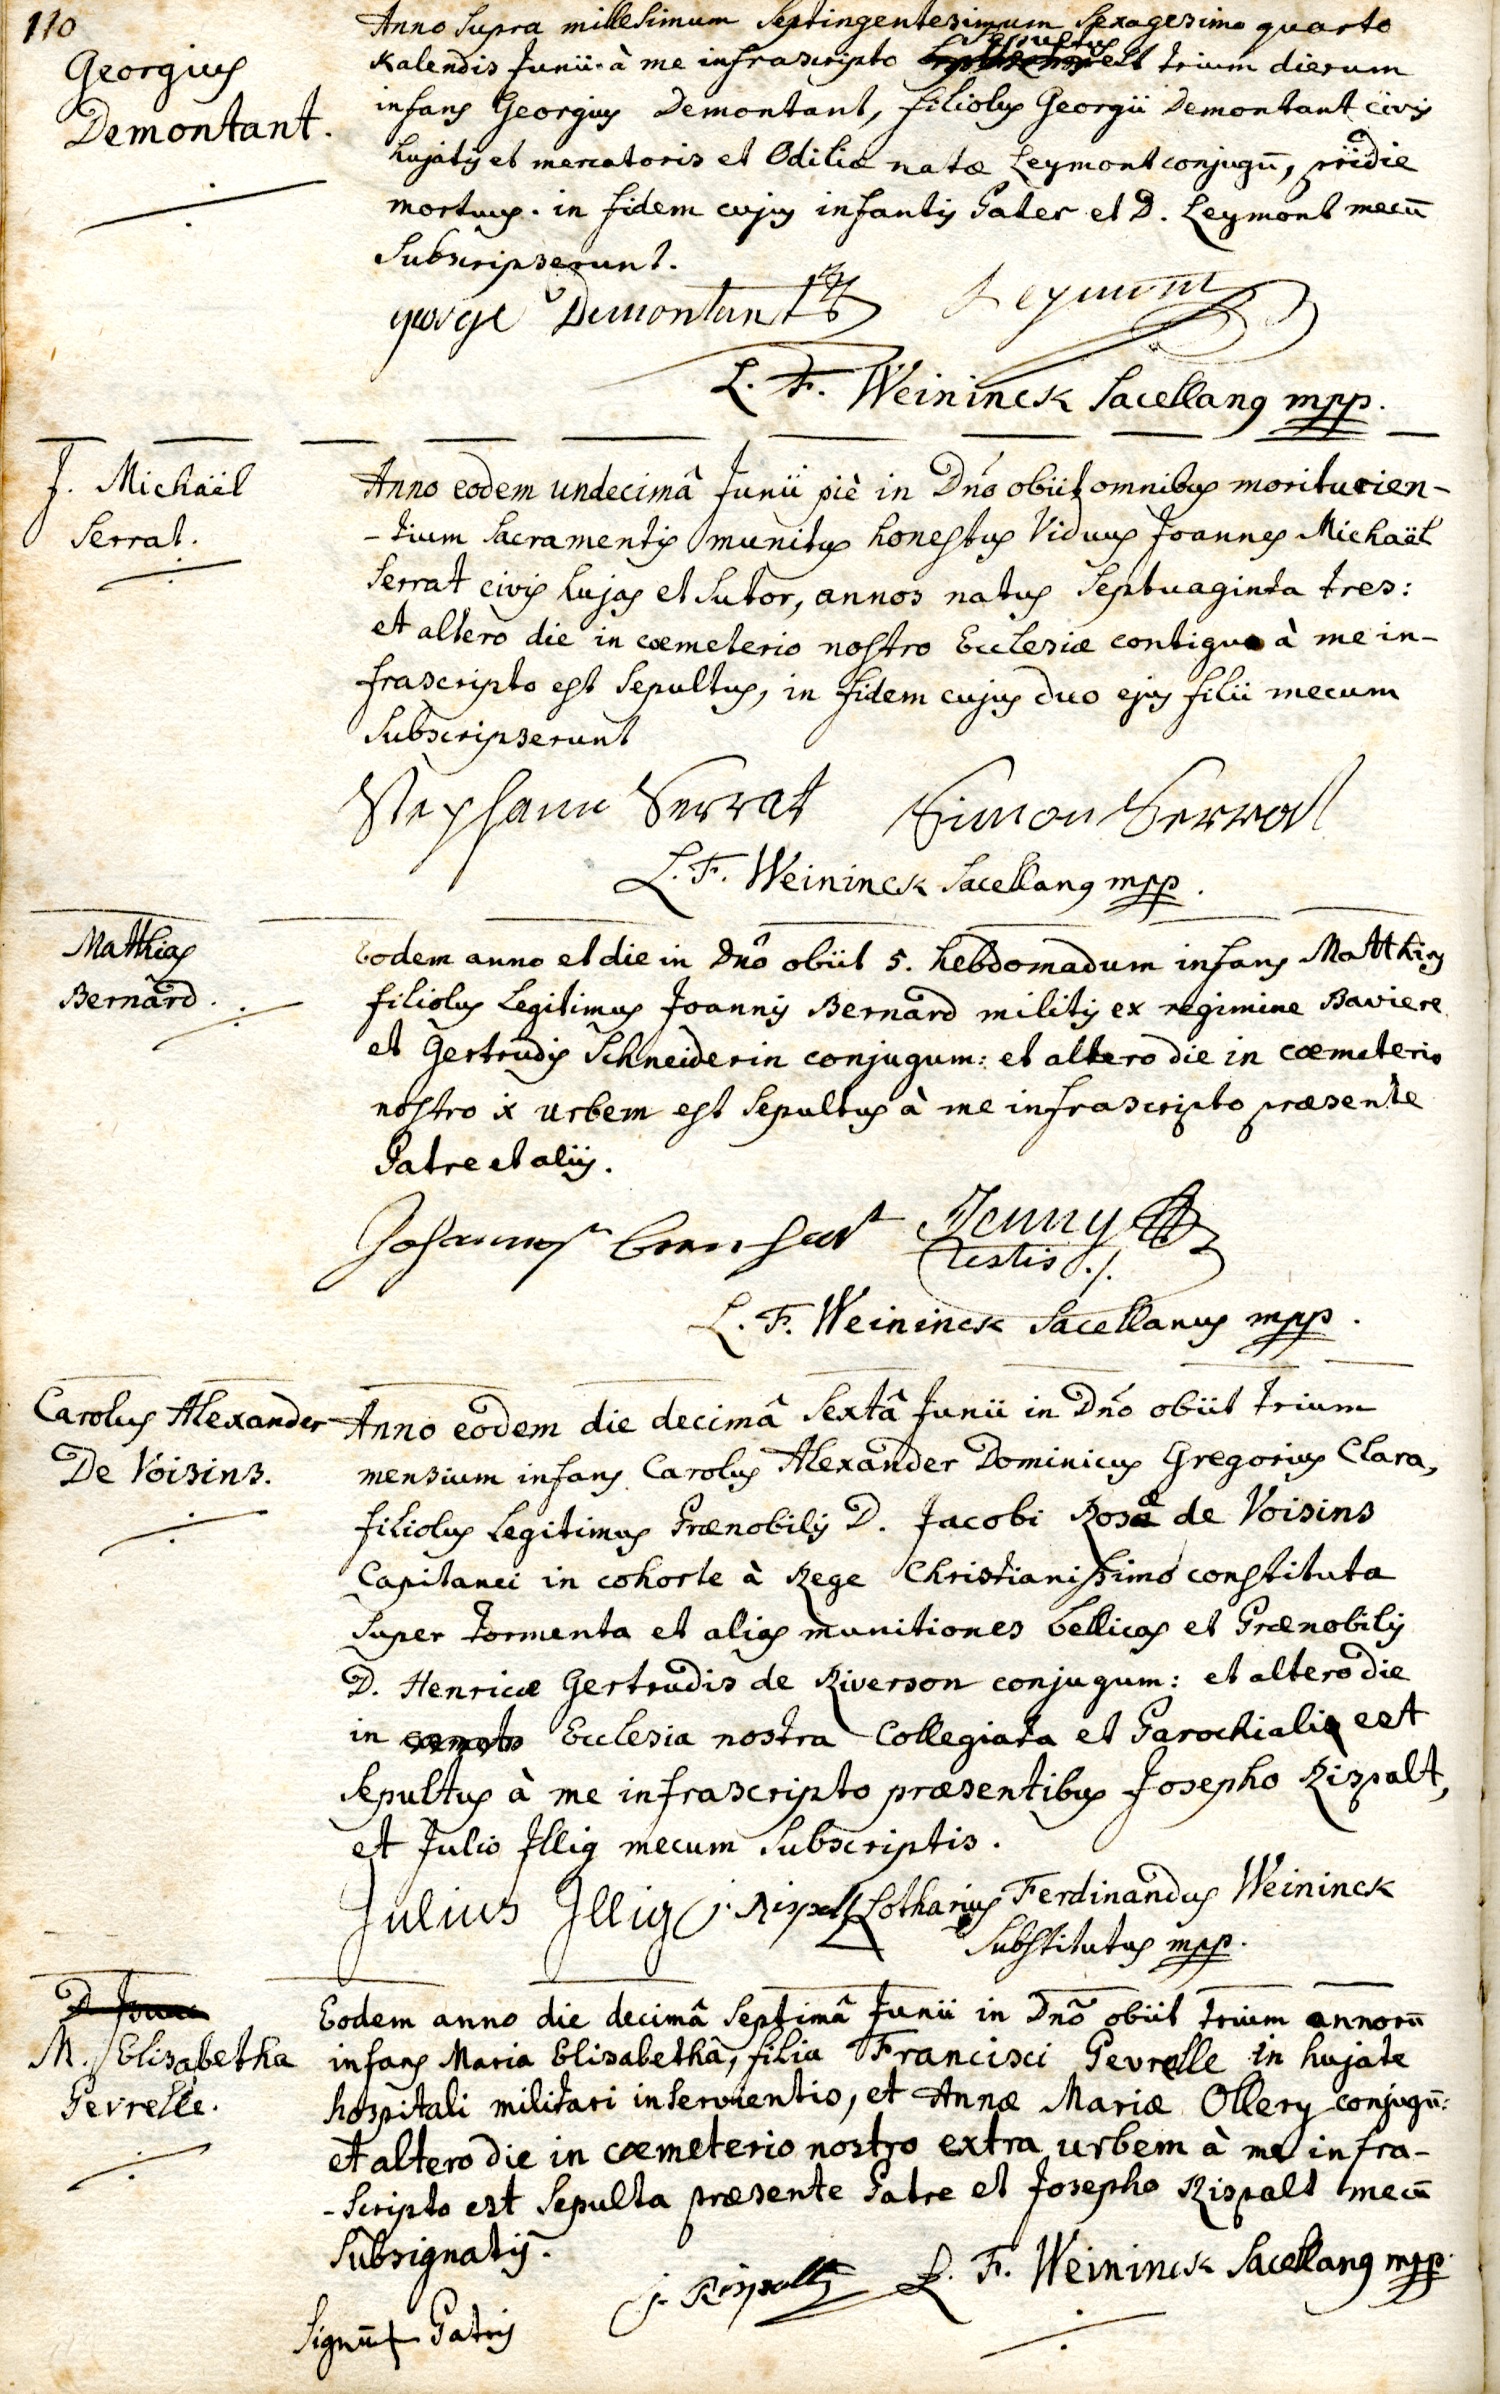 110
Georgius
Demontant.
Anno supra millesimum septingentesimum sexagesimo quarto
Kalendis Junii à me infrascripto sepultus est trium dierum
infans Georgius Demontant, filiolus Georgii Demontant civis
hujatis et mercatoris et Odiliæ natæ Leymont conjugū, pridie
mortuus. in fidem cujus infantis Pater et D. Leymont mecū
subscripserunt.
george Demontant Leymont
L. F. Weininck Sacellan9 mpp.
J. Michaël
Serrat.
Anno eodem undecimâ Junii piè in Dño obiit omnibus moriturien-
-tium sacramentis munitus honestus viduus Joannes Michaël
Serrat civis hujas et sutor, annos natus septuaginta tres:
et altero die in cœmeterio nostro Ecclesiæ contiguo à me in-
frascripto est sepultus, in fidem cujus duo ejus filii mecum
subscripserunt
Stephann Serrat Simon Serrat
L. F. Weininck Sacellan9 mpp.
Matthias
Bernard.
Eodem anno et die in Dño obiit 5. hebdomadum infans Matthias
filiolus legitimus Joannis Bernard militis ex regimine Baviere
et Gertrudis Schneiderin conjugum: et altero die in cœmeterio
nostro ix urbem est sepultus à me infrascripto præsente
Patre et aliis.
Johannes bernhart Jenny
testis
L. F. Weininck Sacellanus mpp.
Carolus Alexander
De Voisins.
Anno eodem die decimâ sextâ Junii in Dño obiit trium
mensium infans Carolus Alexander Dominicus Gregorius Clara,
filiolus legitimus Prænobilis D. Jacobi Rosæ de Voisins
Capitanei in cohorte à Rege Christianissimo constituta
super tormenta et alias munitiones bellicas et Prænobilis
D. Henricæ Gertrudis de Riverson conjugum: et altero die
in Ecclesia nostra Collegiata et Parochialis est
sepultus à me infrascripto præsentibus Josepho Rispalt,
et Julio Illig mecum subscriptis.
Julius Illig j. Rispalt Lotharius Ferdinandus Weininck
substitutus mpp.
M. Elisabetha
Pevrelle.
Eodem anno die decimâ septimâ Junii in Dño obiit trium annorū
infans Maria Elisabetha, filia Francisci Pevrelle in hujate
hospitali militari inservientis, et Annæ Mariæ Ollery conjugū:
et altero die in cœmeterio nostro extra urbem à me infra-
-scripto est sepulta præsente Patre et Josepho Rispalt mecū
subsignatis.
j. Rispalt L. F. Weininck Sacellan9 mpp.
Signū + Patris